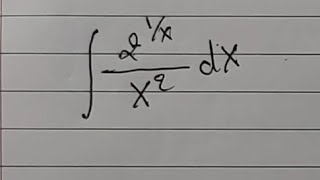 ∫ 2^{1/x} / x^2 dx